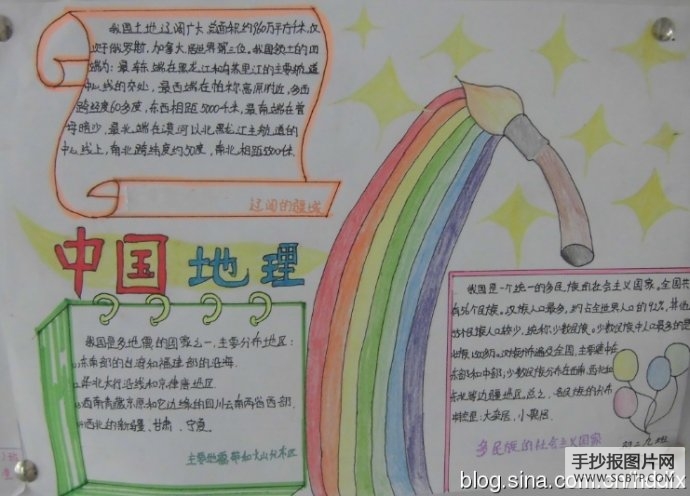 我国土地辽阔广大,总面积约960万平方千米,仅
近于俄罗斯,加拿大,居世界第三位。我国领土的四
端为:最东端在黑龙江和乌苏里江的主要航道
中心线的交处,最西端在帕米高原附近,东西
跨经度60多度,东西相距5000千米,最南端在曾
母暗沙,最北端在漠河以北黑龙江主航道的
中心线上,南北跨纬度约50度,南北相距5500千米.
辽阔的疆域
中国地理
我国是多地震的国家之一,主要分布地区:
东南部的台湾和福建部的沿海
华北太行沿线和京津唐地区
西南青藏高原和它边缘的四川云南两省西部
西北的新疆、甘肃、宁夏。
主要地震带和火山分布区
我国是一个统一的多民族的社会主义国家。全国共
有56个民族。汉族人口最多,约占全
人口的92%,其他
55个民族人口较少,统称少数民族。少数民族中人口最多的是
壮族
汉族分布遍及全国,主要集中在
东部和中部,少数民族分布在西南,西北和
东北等边疆地区。总之,各民族的分布
特点是:大杂居,小聚居.
多民族的社会主义国家
初二九班
手抄报图片网
WWW.SCBTP.COM
blog.sina.com.cn